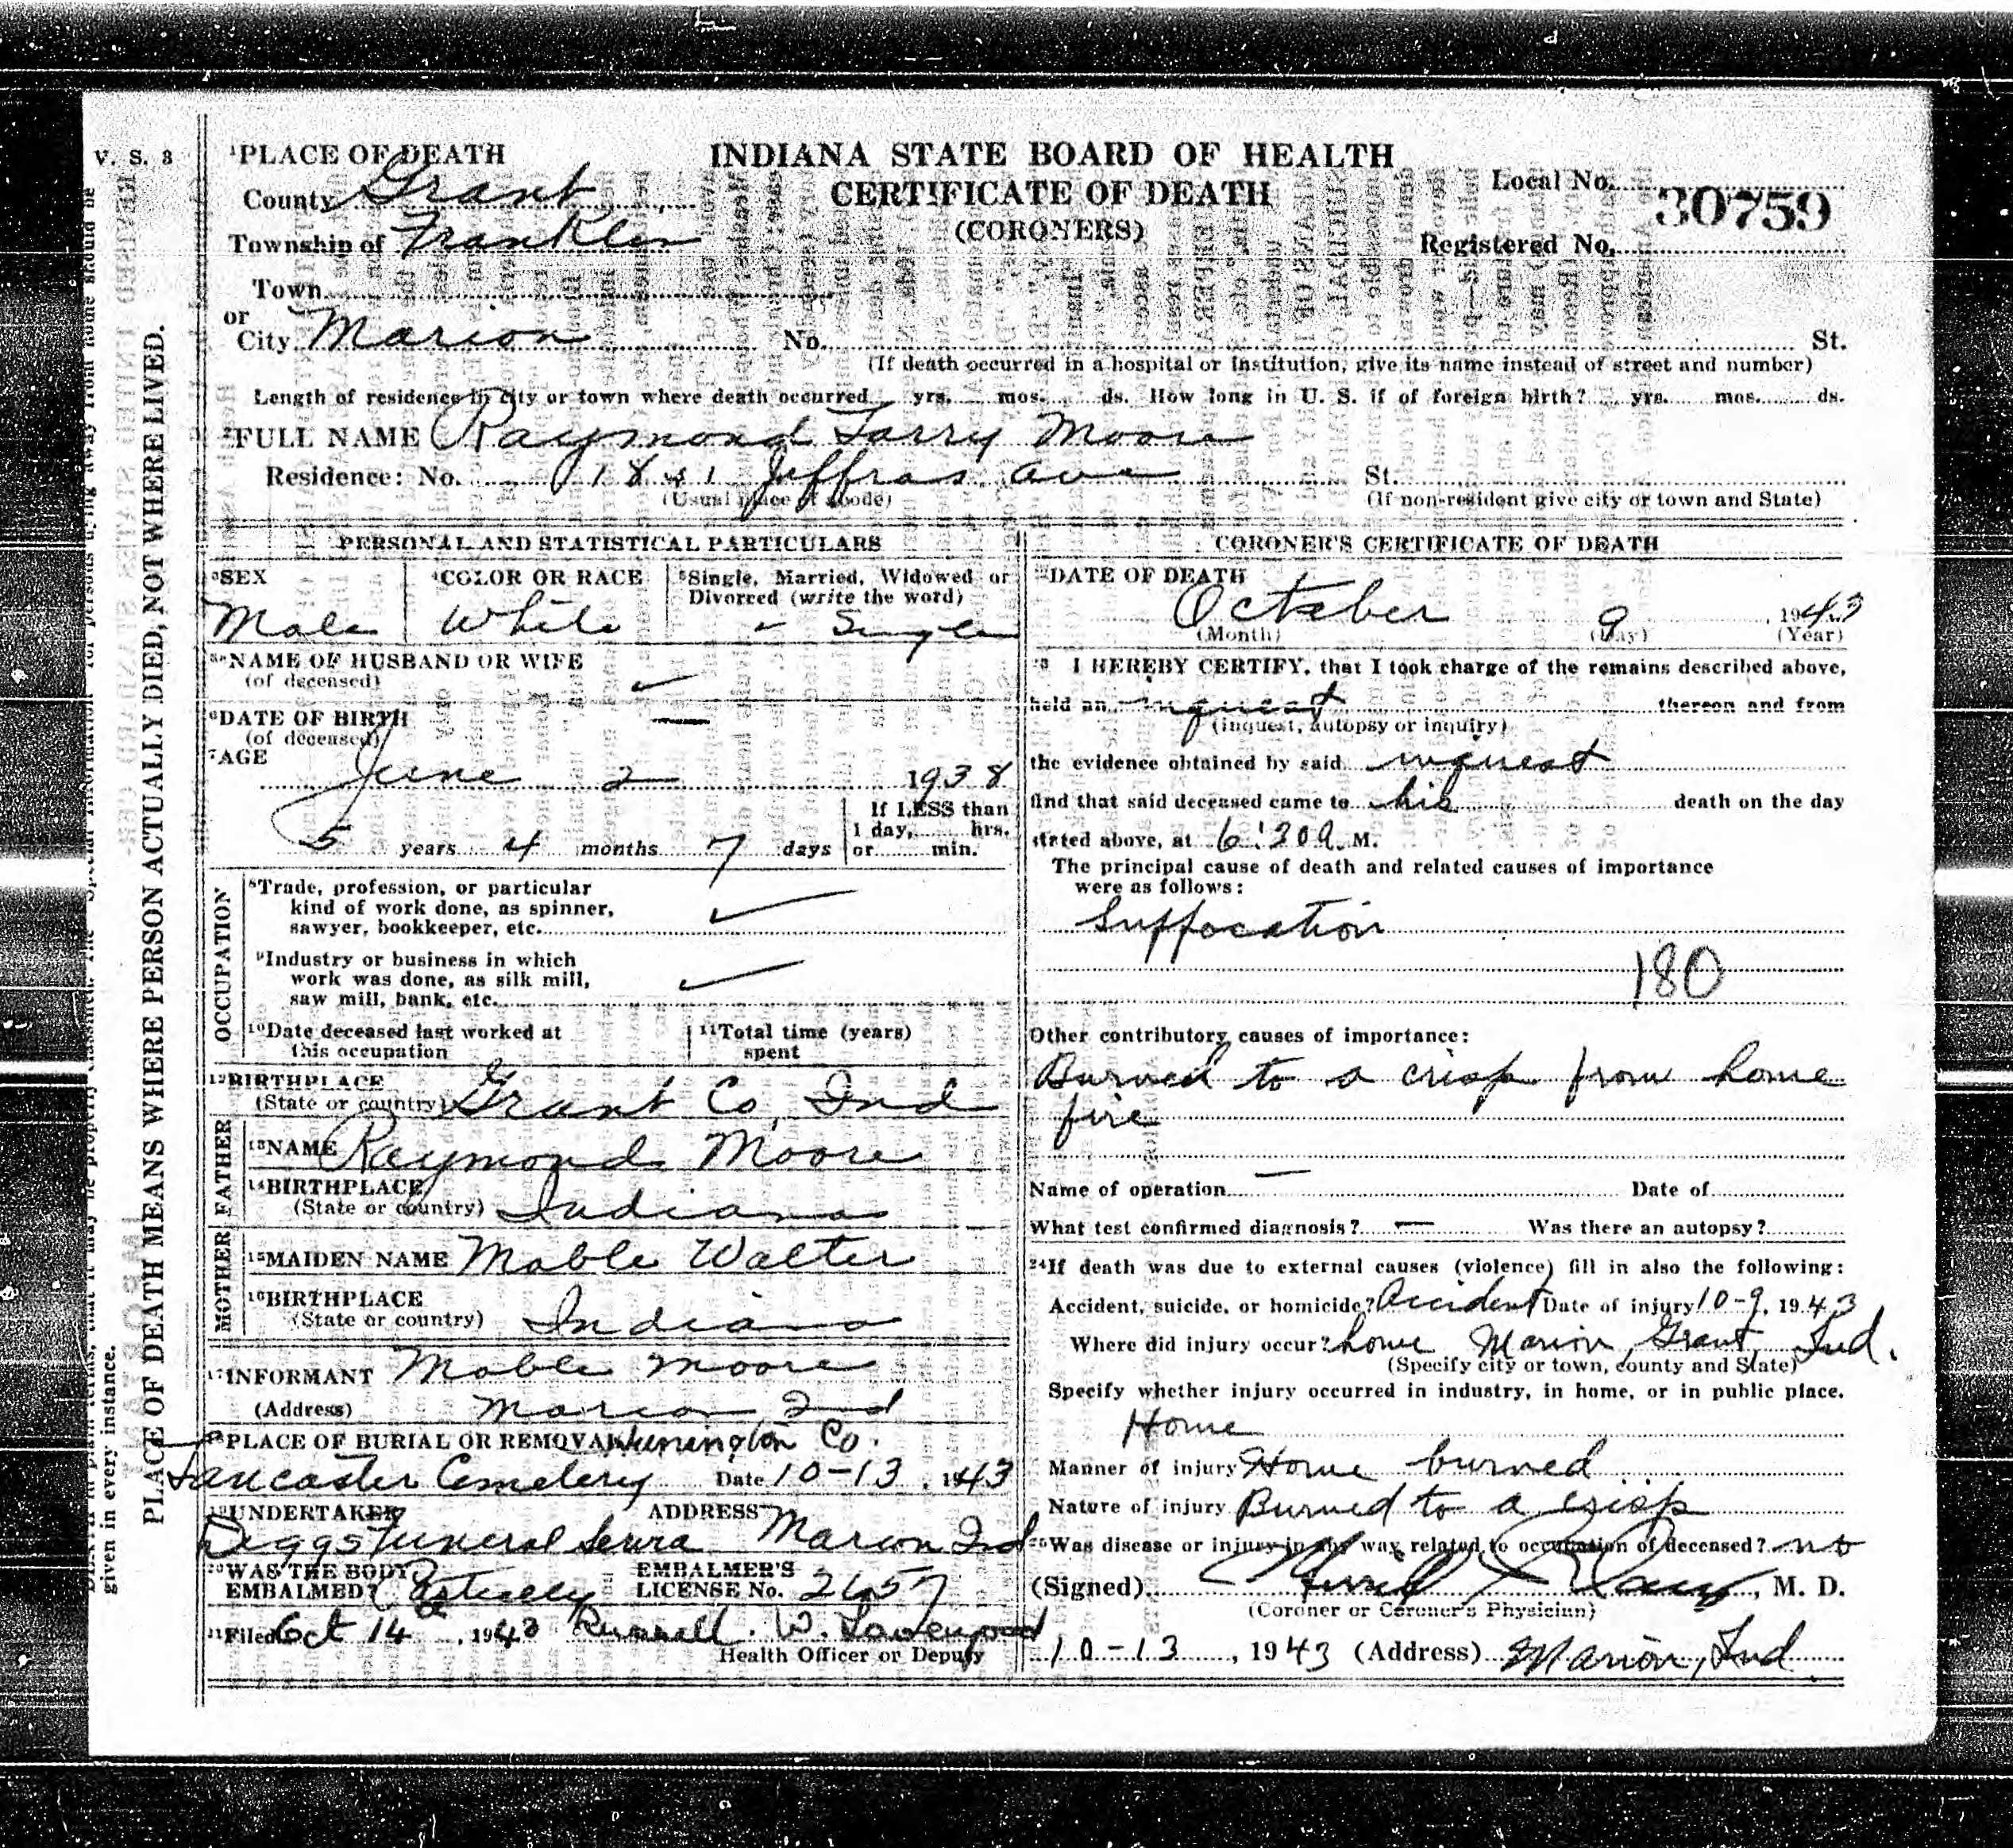 V. S. 3
INDIANA STATE BOARD OF HEALTH
CERTIFICATE OF DEATH
(CORONERS)
Local No.
30759
Registered No.
1 PLACE OF DEATH
County Grant
Township of Franklin
Town
or
City Marion No. St.
(If death occurred in a hospital or institution, give its name instead of street and number)
Length of residence in city or town where death occurred yrs. mos. ds. How long in U. S. if of foreign birth? yrs. mos. ds.
2 FULL NAME Raymond Larry Moore
Residence: No. Jeffras Ave St.
(Usual place of abode) (If non-resident give city or town and State)
PERSONAL AND STATISTICAL PARTICULARS
3 SEX 4 COLOR OR RACE 5 Single, Married, Widowed or
Divorced (write the word)
Male White Single
5a NAME OF HUSBAND OR WIFE
(of deceased)
6 DATE OF BIRTH
(of deceased)
7 AGE
June 2 1938
If LESS than
1 day, hrs.
5 years 4 months 7 days or min.
OCCUPATION
8 Trade, profession, or particular
kind of work done, as spinner,
sawyer, bookkeeper, etc.
9 Industry or business in which
work was done, as silk mill,
saw mill, bank, etc.
10 Date deceased last worked at 11 Total time (years)
this occupation spent
12 BIRTHPLACE
(State or country) Grant Co, Ind
FATHER
13 NAME Raymond Moore
14 BIRTHPLACE
(State or country) Indiana
MOTHER
15 MAIDEN NAME Mable Walter
16 BIRTHPLACE
(State or country) Indiana
17 INFORMANT Mable Moore
(Address) Marion Ind
18 PLACE OF BURIAL OR REMOVAL Co.
Lancaster Cemetery Date 10-13, 1943
19 UNDERTAKER ADDRESS
Diggs Funeral Marion Ind
20 WAS THE BODY EMBALMER'S
EMBALMED? LICENSE No. 2657
21 Filed Oct 14, 1943 Russell W.
Health Officer or Deputy
CORONER'S CERTIFICATE OF DEATH
22 DATE OF DEATH
October 9, 1943
(Month) (Day) (Year)
23 I HEREBY CERTIFY, that I took charge of the remains described above,
held an inquest thereon and from
(inquest, autopsy or inquiry)
the evidence obtained by said inquest
find that said deceased came to his death on the day
stated above, at 6:30 a. M.
The principal cause of death and related causes of importance
were as follows:
Suffocation
180
Other contributory causes of importance:
Burned to a crisp from home
fire
Name of operation — Date of
What test confirmed diagnosis? — Was there an autopsy?
24 If death was due to external causes (violence) fill in also the following:
Accident, suicide, or homicide? Accident Date of injury 10-9, 1943
Where did injury occur? home Marion, Grant, Ind.
(Specify city or town, county and State)
Specify whether injury occurred in industry, in home, or in public place.
Home
Manner of injury Home burned
Nature of injury Burned to a crisp
25 Was disease or injury in any way related to occupation of deceased? no
(Signed) M. D.
(Coroner or Coroner's Physician)
10-13, 1943 (Address) Marion, Ind.
PLACE OF DEATH MEANS WHERE PERSON ACTUALLY DIED, NOT WHERE LIVED.
given in every instance.